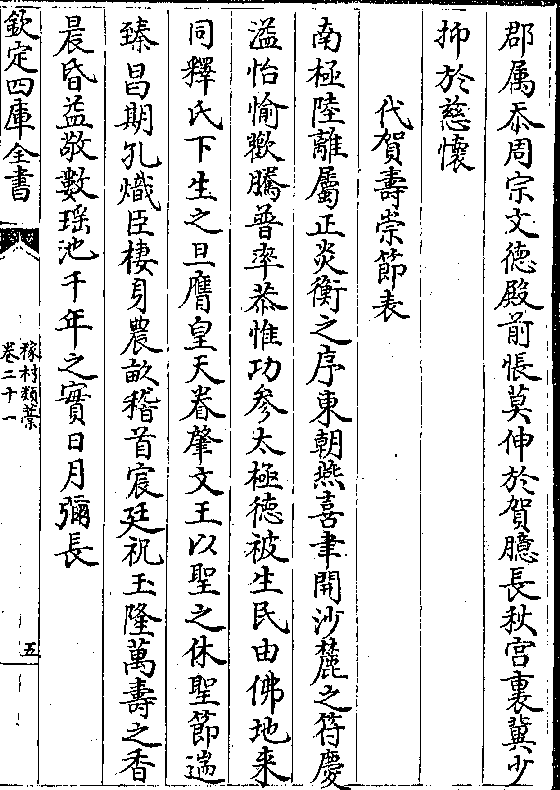 郡属忝周宗文德殿前悵莫伸於賀臆長秋宫裏冀少
抑於慈懷
代賀壽崇節表
南極陸離屬正炎衡之序東朝燕喜聿開沙麓之符慶
溢怡愉歡騰普率恭惟功參太極德被生民由佛地来
同釋氏下生之旦膺皇天眷肇文王以聖之休聖節遄
臻昌期孔熾臣棲身農畝稽首宸廷祝玉隆萬壽之香
晨昏益敬數瑶池千年之實日月彌長
欽定四庫全書
稼村類藁
卷二十一
五